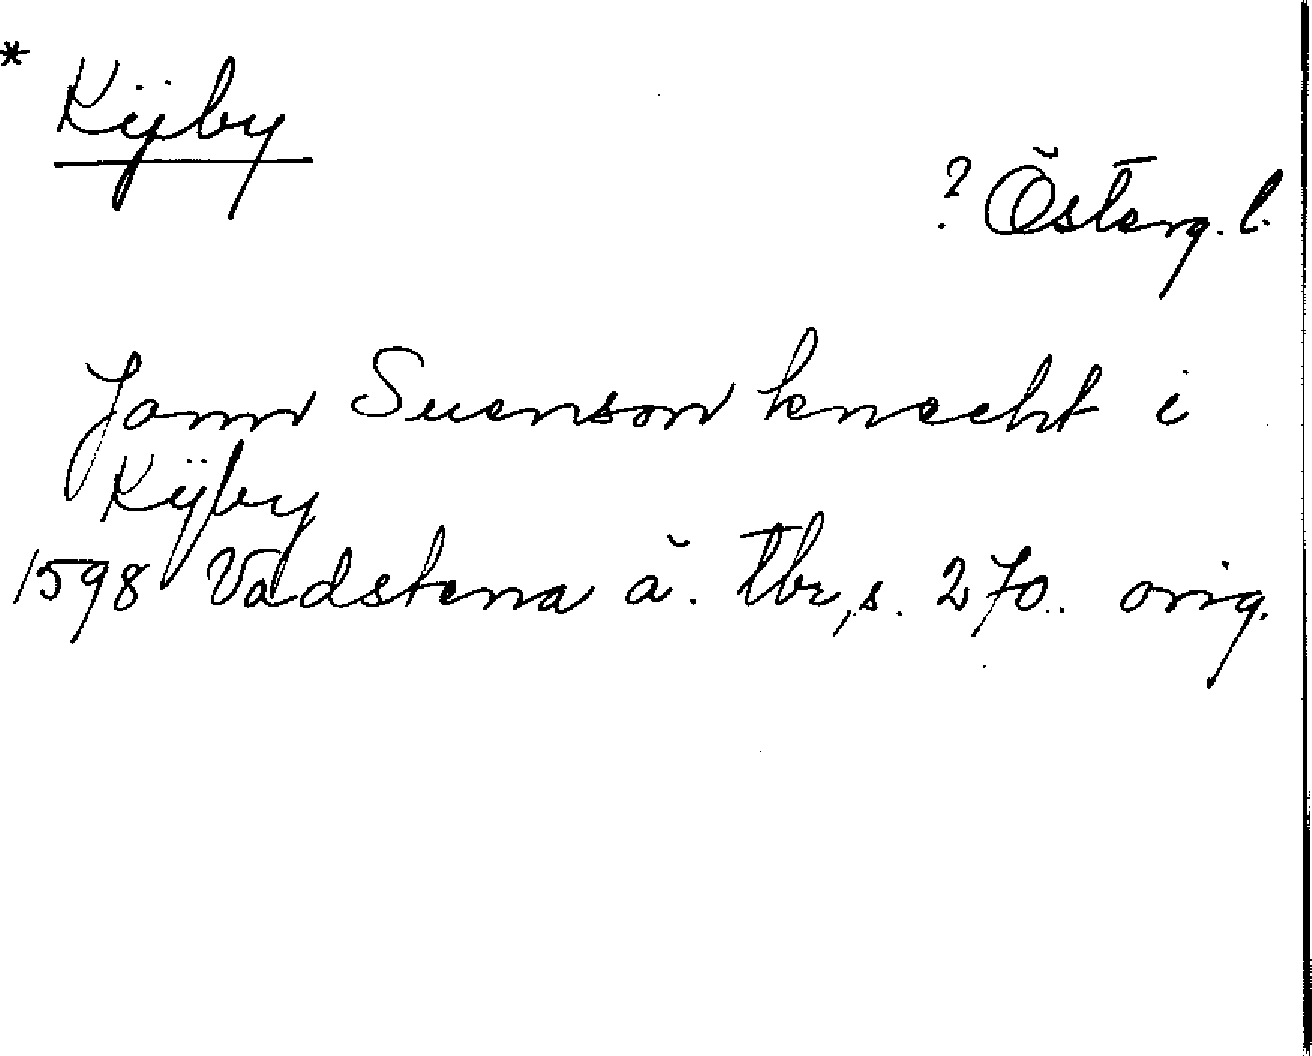 * Kÿby
? Österg. l.
Jonn Suenson knecht i
Kÿby
1598 Vadstena ä. Tbr, s. 270. orig.